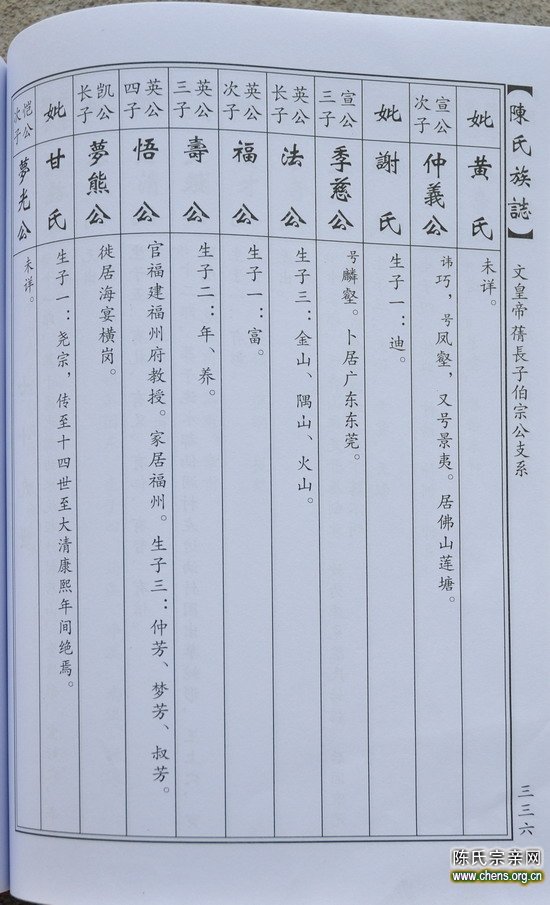 【陳氏族誌】
文皇帝蒨長子伯宗公支系
三三六
妣
黃氏
未详。
宣公次子
仲義公
讳巧，号凤壑，又号景夷。居佛山莲塘。
妣
謝氏
生子一：迪。
宣公三子
季慈公
号麟壑。卜居广东东莞。
英公长子
法公
生子三：金山、隅山、火山。
英公次子
福公
生子一：富。
英公三子
壽公
生子二：年、养。
英公四子
悟公
官福建福州府教授。家居福州。生子三：仲芳、梦芳、叔芳。
凯公长子
夢熊公
徙居海宴横岗。
妣
甘氏
生子一：尧宗，传至十四世至大清康熙年间绝焉。
恺公次子
夢光公
未详。
陈氏宗亲网
www.chens.org.cn